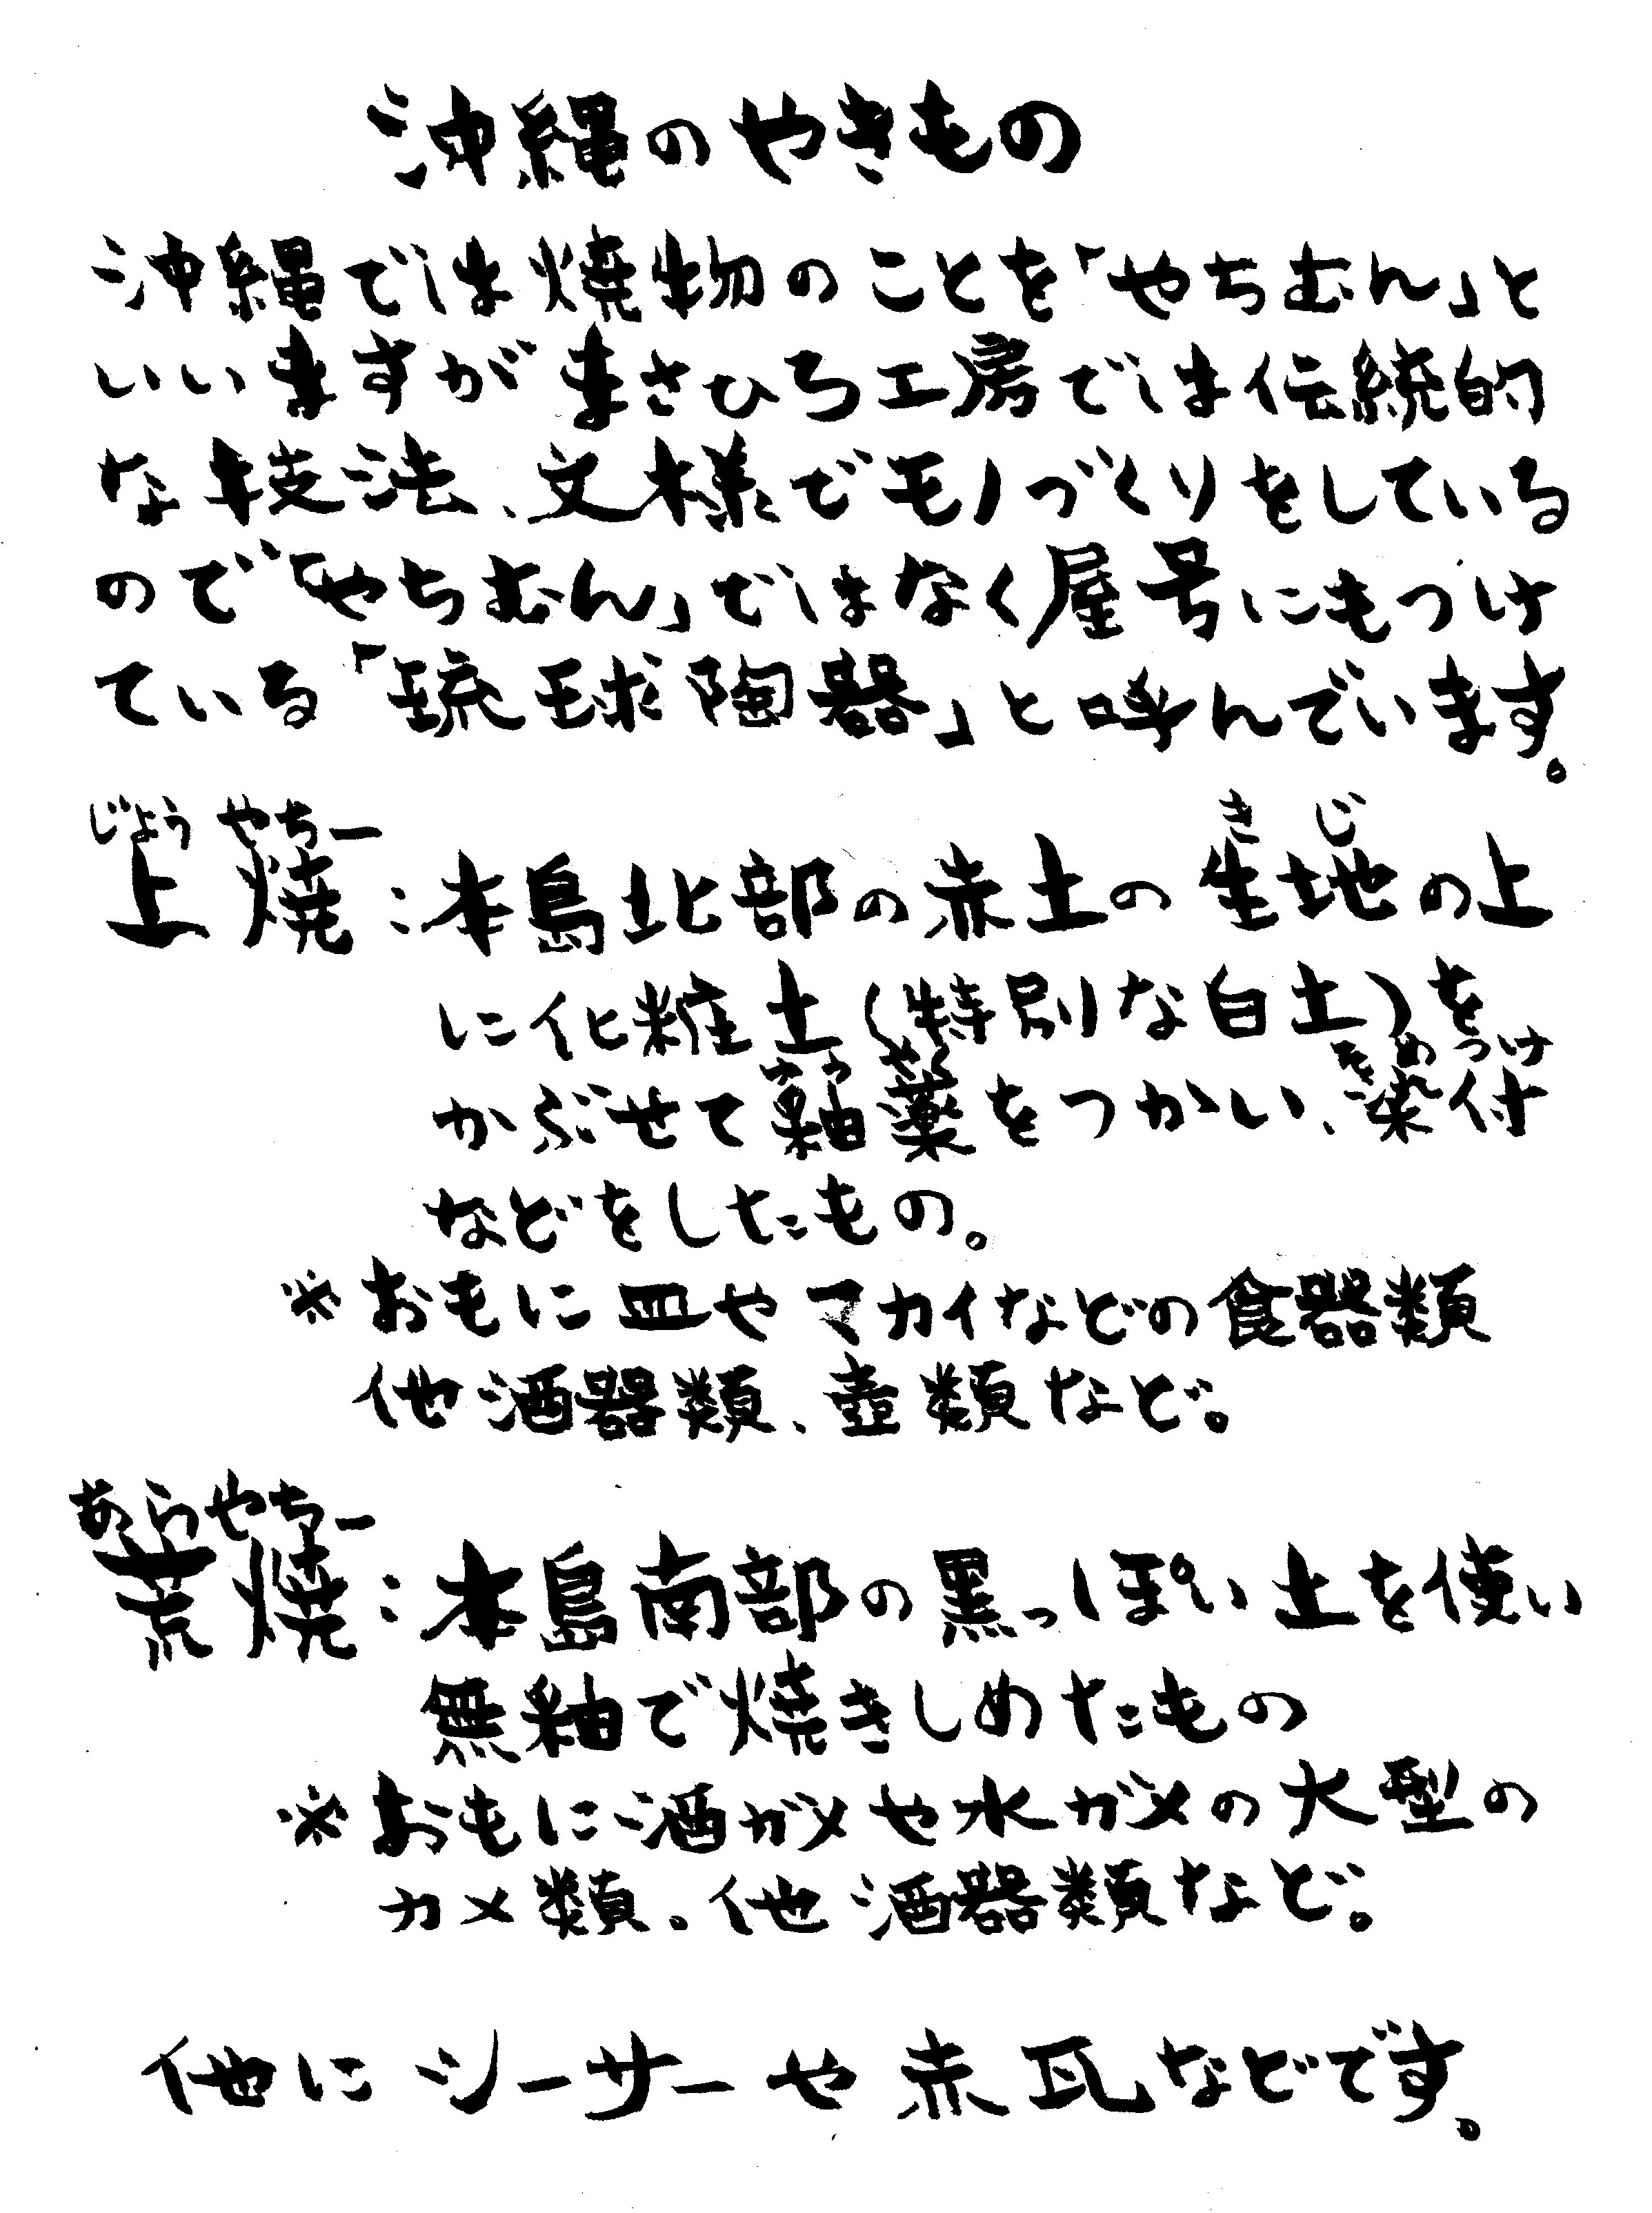 沖縄のやきもの
沖縄では焼物のことを「やちむん」と
いいますがまさひろ工房では伝統的
な技法、文様でモノづくりをしている
ので「やちむん」ではなく屋号にもつけ
ている「琉球陶器」と呼んでいます。
じょう やちー きじ
上焼：本島北部の赤土の生地の上
に化粧土(特別な白土)を
うわ やく そめつけ
かぶせて釉薬をつかい、染付
などをしたもの。
※おもに皿やマカイなどの食器類
他酒器類、壺類など。
あらやちー
荒焼：本島南部の黒っぽい土を使い
無釉で焼きしめたもの
※おもに酒ガメや水ガメの大型の
カメ類。他酒器類など。
他にシーサーや赤瓦などです。